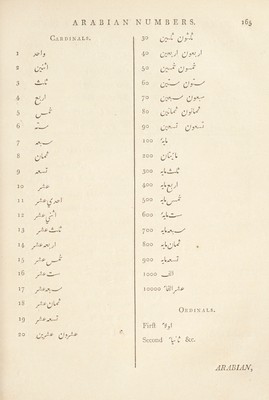 ARABIAN NUMBERS. 163
CARDINALS.
1 واحد
2 اثنين
3 ثلث
4 اربع
5 خمس
6 سته
7 سبعه
8 ثمان
9 تسعه
10 عشر
11 احدي عشر
12 اثني عشر
13 ثلث عشر
14 اربعه عشر
15 خمس عشر
16 ست عشر
17 سبعه عشر
18 ثمان عشر
19 تسعه عشر
20 عشرون عشرين
30 ثلثون ثلثين
40 اربعون اربعين
50 خمسون خمسين
60 ستون ستين
70 سبعون سبعين
80 ثمانون ثمانين
90 تسعون تسعين
100 مايه
200 مايتان
300 ثلث مايه
400 اربع مايه
500 خمس مايه
600 ست مايه
700 سبعمايه
800 ثمان مايه
900 تسعمايه
1000 الف
10000 عشر الف
ORDINALS.
First اولا
Second ثانيا &c.
ARABIAN,